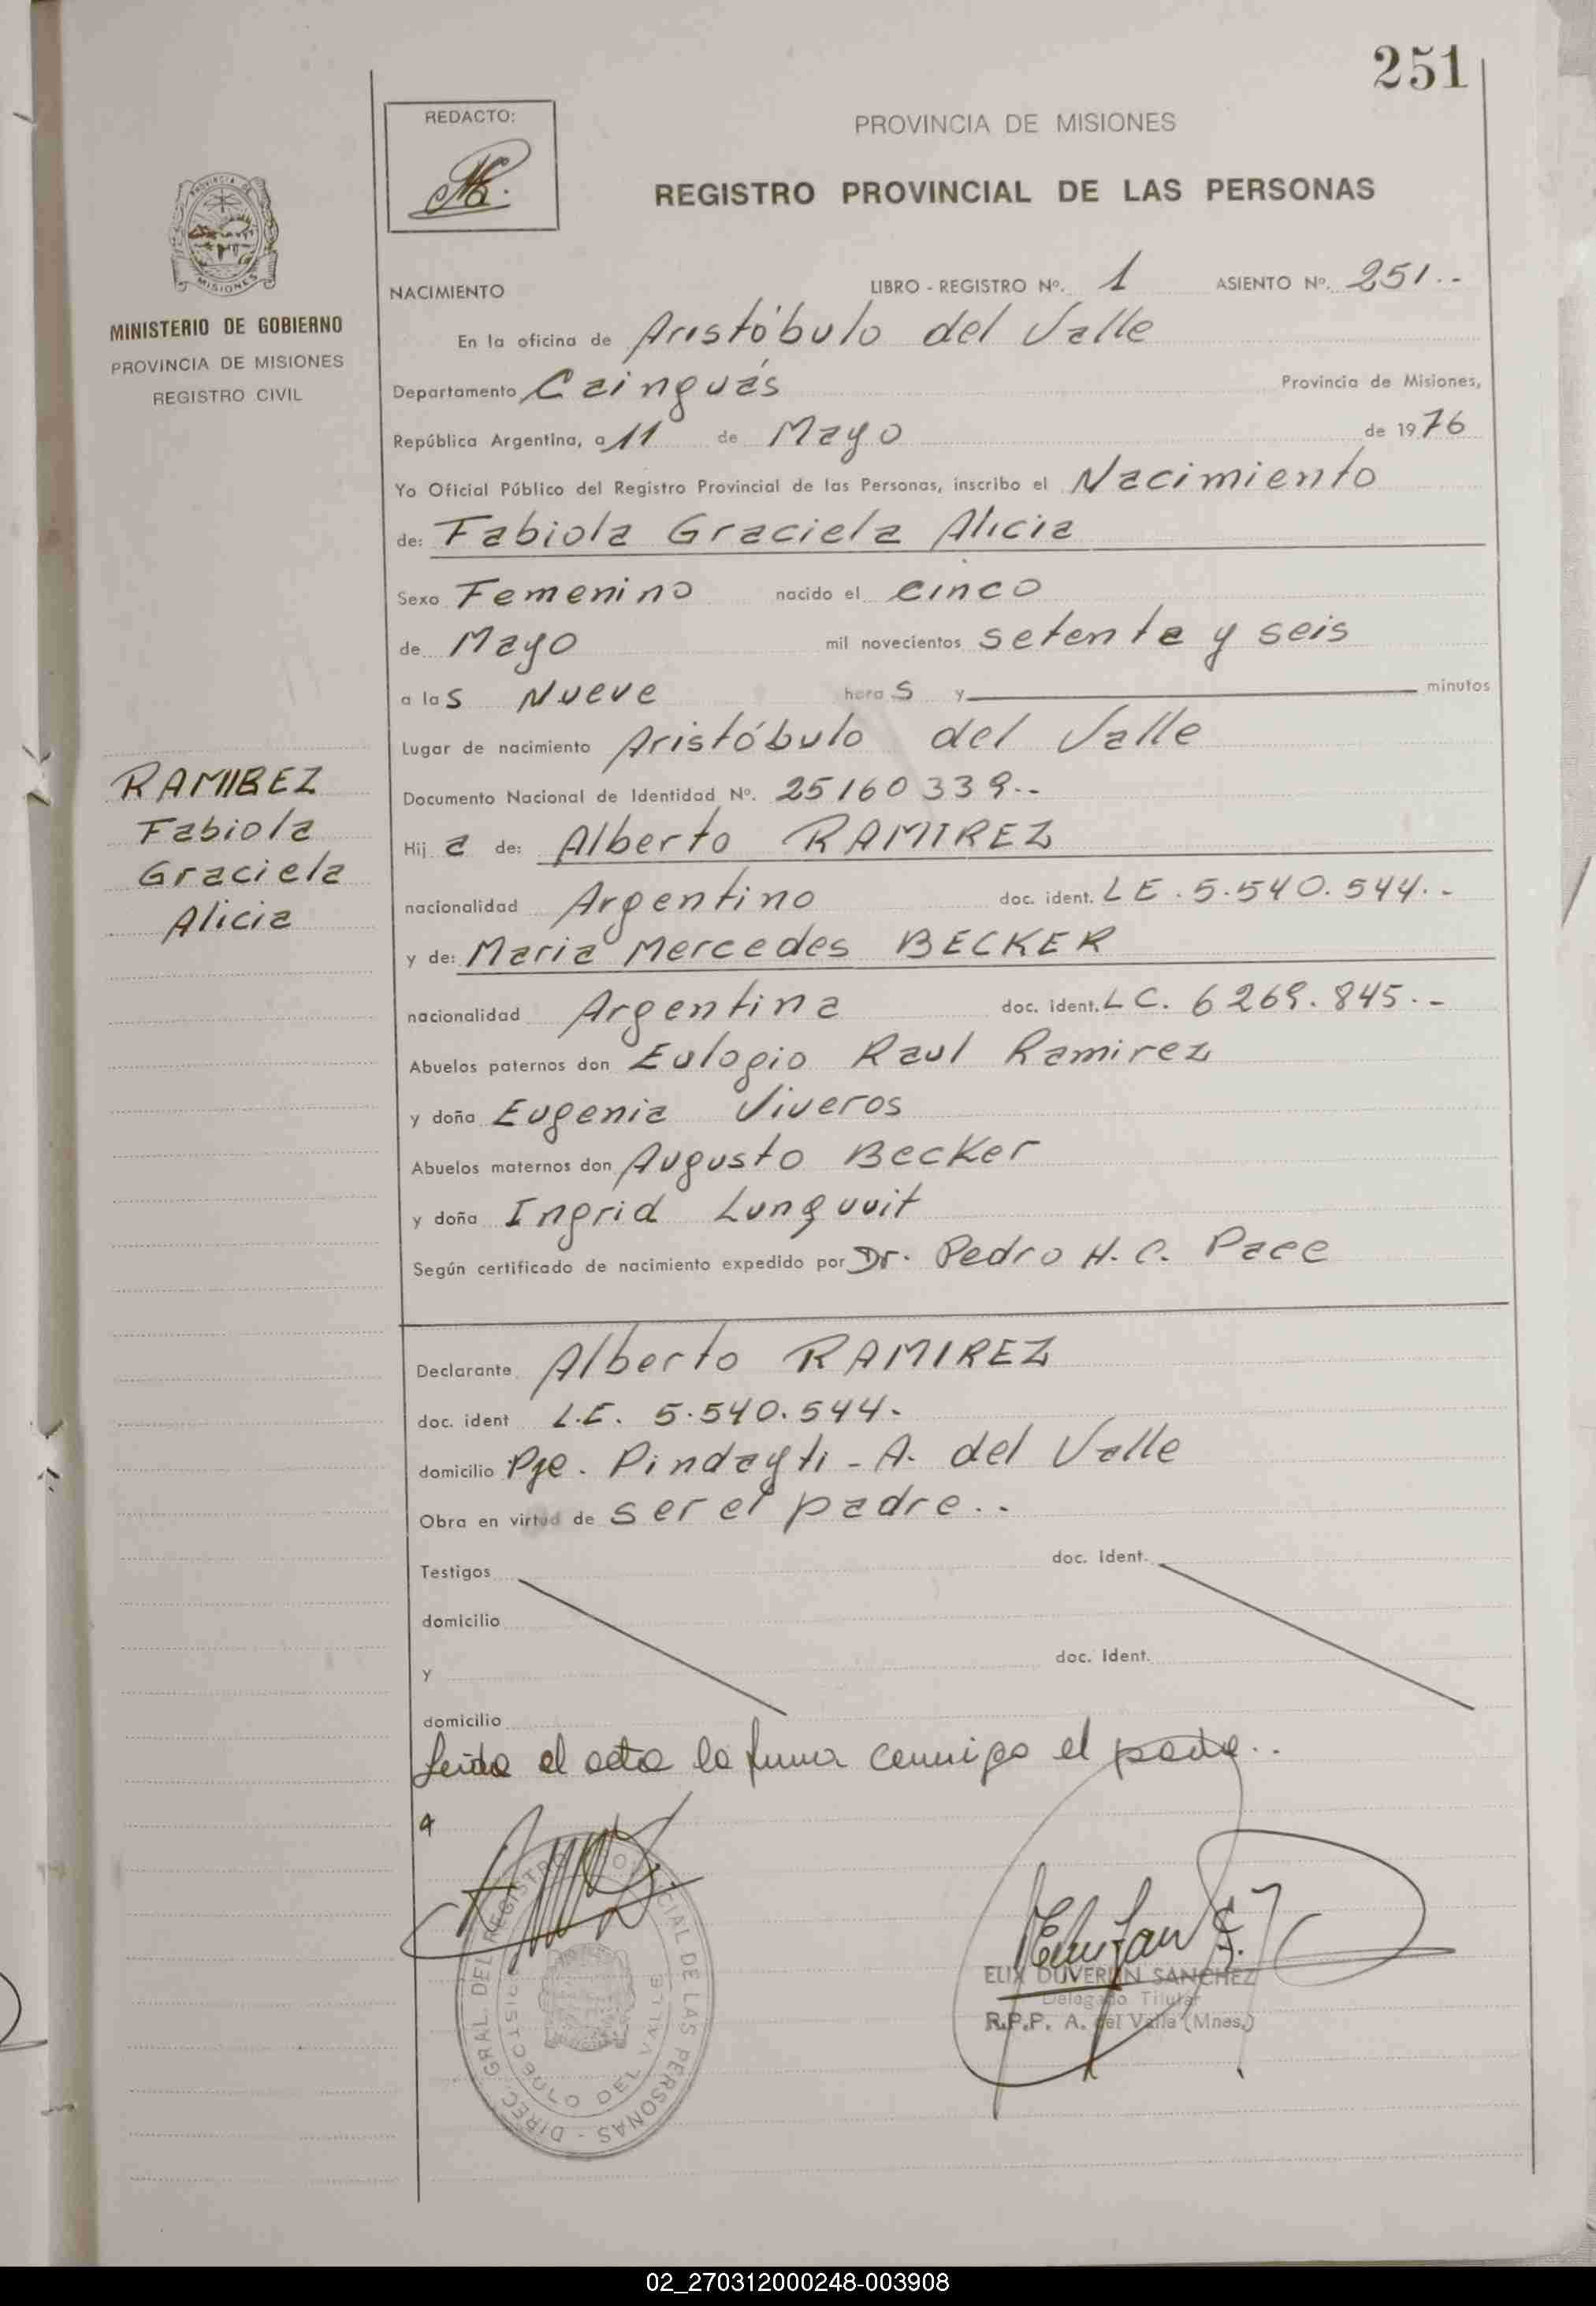 251
REDACTO:
PROVINCIA DE MISIONES
REGISTRO PROVINCIAL DE LAS PERSONAS
PROVINCIA DE
MISIONES
MINISTERIO DE GOBIERNO
PROVINCIA DE MISIONES
REGISTRO CIVIL
NACIMIENTO LIBRO - REGISTRO Nº. 1 ASIENTO Nº. 251.--
En la oficina de Aristóbulo del Valle
Departamento Cainguás Provincia de Misiones,
República Argentina, a 11 de Mayo de 1976
Yo Oficial Público del Registro Provincial de las Personas, inscribo el Nacimiento
de: Fabiola Graciela Alicia
Sexo Femenino nacido el cinco
de Mayo mil novecientos setenta y seis
a las Nueve horas y minutos
Lugar de nacimiento Aristóbulo del Valle
Documento Nacional de Identidad Nº. 25160339.--
RAMIREZ
Fabiola
Graciela
Alicia
Hija de: Alberto RAMIREZ
nacionalidad Argentino doc. ident. L E . 5.540.544.-
y de: Maria Mercedes BECKER
nacionalidad Argentina doc. ident. L C. 6269.845.-
Abuelos paternos don Eulogio Raul Ramirez
y doña Eugenia Viveros
Abuelos maternos don Augusto Becker
y doña Ingrid Lunquvit
Según certificado de nacimiento expedido por Dr. Pedro H. C. Pace
Declarante Alberto RAMIREZ
doc. ident L.E. 5.540.544.
domicilio Pje. Pindayti - A. del Valle
Obra en virtud de ser el padre..
Testigos doc. Ident.
domicilio
y doc. Ident.
domicilio
Leida el acta la firma conmigo el padre..
DIREC. GRAL. DEL REGISTRO PROVINCIAL DE LAS PERSONAS -
ARISTOBULO DEL VALLE
ELIX DUVERLIN SANCHEZ
Delegado Titular
R.P.P. A. del Valle (Mnes.)
02_270312000248-003908